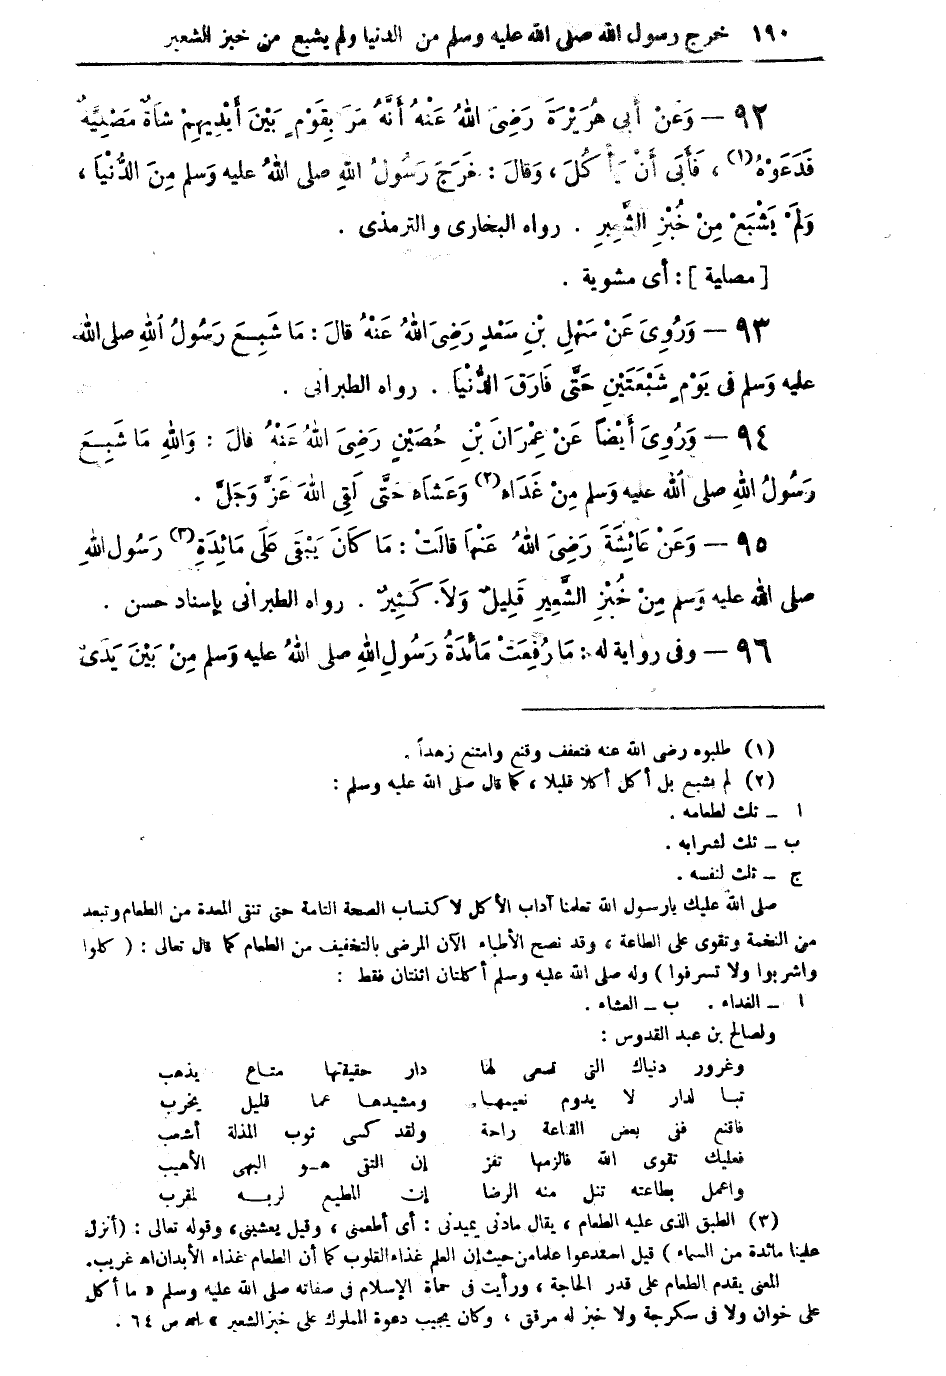 ١٩٠ خرج رسول الله صلى الله عليه وسلم من الدنيا ولم يشبع من خبز الشعير
٩٢ — وَعَنْ أَبِي هُرَيْرَةَ رَضِيَ اللهُ عَنْهُ أَنَّهُ مَرَّ بِقَوْمٍ بَيْنَ أَيْدِيهِمْ شَاةٌ مَصْلِيَّةٌ
فَدَعَوْهُ (١) ، فَأَبَى أَنْ يَأْكُلَ ، وَقَالَ : خَرَجَ رَسُولُ اللهِ صلى اللهُ عليه وَسلم مِنَ الدُّنْيَا ،
وَلَمْ يَشْبَعْ مِنْ خُبْزِ الشَّعِيرِ . رواه البخارى والترمذى .
[ مصلية ] : أى مشوية .
٩٣ — وَرُوِىَ عَنْ سَهْلِ بْنِ سَعْدٍ رَضِىَ اللهُ عَنْهُ قالَ : مَا شَبِعَ رَسُولُ اللهِ صلى الله
عليه وَسلم فى يَوْمٍ شَبْعَتَيْنِ حَتَّى فَارَقَ الدُّنْيَا . رواه الطبرانى .
٩٤ — وَرُوِىَ أَيْضاً عَنْ عِمْرَانَ بْنِ حُصَيْنٍ رَضِىَ اللهُ عَنْهُ قالَ : وَاللهِ مَا شَبِعَ
رَسُولُ اللهِ صلى الله عليه وَسلم مِنْ غَدَاهِ (٢) وَعَشَاهِ حَتَّى لَقِىَ اللهَ عَزَّ وَجَلَّ .
٩٥ — وَعَنْ عَائِشَةَ رَضِىَ اللهُ عَنْهَا قالَتْ : مَا كانَ يَبْقَى عَلَى مَائِدَةِ (٣) رَسُولِ اللهِ
صلى الله عليه وَسلم مِنْ خُبْزِ الشَّعِيرِ قَلِيلٌ وَلاَ كَثِيرٌ . رواه الطبرانى بإسناد حسن .
٩٦ — وفى رواية له : مَا رُفِعَتْ مَائدَةُ رَسُولِ اللهِ صلى اللهُ عليه وَسلم مِنْ بَيْنَ يَدَىْ
(١) طلبوه رضى الله عنه فتعفف وقنع وامتنع زهداً .
(٢) لم يشبع بل أكل أكلا قليلا ، كما قال صلى الله عليه وسلم :
ا — ثلث لطعامه .
ب — ثلث لشرابه .
ج — ثلث لنفسه .
صلى الله عليك يارسول الله تعلمنا آداب الأكل لاكتساب الصحة التامة حتى تنقى المعدة من الطعام وتبعد
من التخمة وتقوى على الطاعة ، وقد نصح الأطباء الآن المرضى بالتخفيف من الطعام كما قال تعالى : ( كلوا
واشربوا ولا تسرفوا ) وله صلى الله عليه وسلم أكلتان اثنتان فقط :
ا — الغداء . ب — العشاء .
ولصالح بن عبد القدوس :
وغرور دنياك التى تسعى لها دار حقيقتها متاع يذهب
تبا لدار لا يدوم نعيمها ومشيدها عما قليل يخرب
فاقنع ففى بعض القناعة راحة ولقد كسى ثوب المذلة أشعب
فعليك تقوى الله فالزمها تفز إن التقى هو البهى الأهيب
واعمل بطاعته تنل منه الرضا إن المطيع لربه لمقرب
(٣) الطبق الذى عليه الطعام ، يقال مادنى يميدنى : أى أطعمنى ، وقيل يعشينى ، وقوله تعالى : (أنزل
علينا مائدة من السماء ) قيل استدعوا علما من حيث إن العلم غذاء القلوب كما أن الطعام غذاء الأبدان اه غريب.
المعنى يقدم الطعام على قدر الحاجة ، ورأيت فى حماة الإسلام فى صفاته صلى الله عليه وسلم « ما أكل
على خوان ولا فى سكرجة ولا خبز له مرقق ، وكان يجيب دعوة المملوك على خبز الشعير » اه ص ٦٤ .